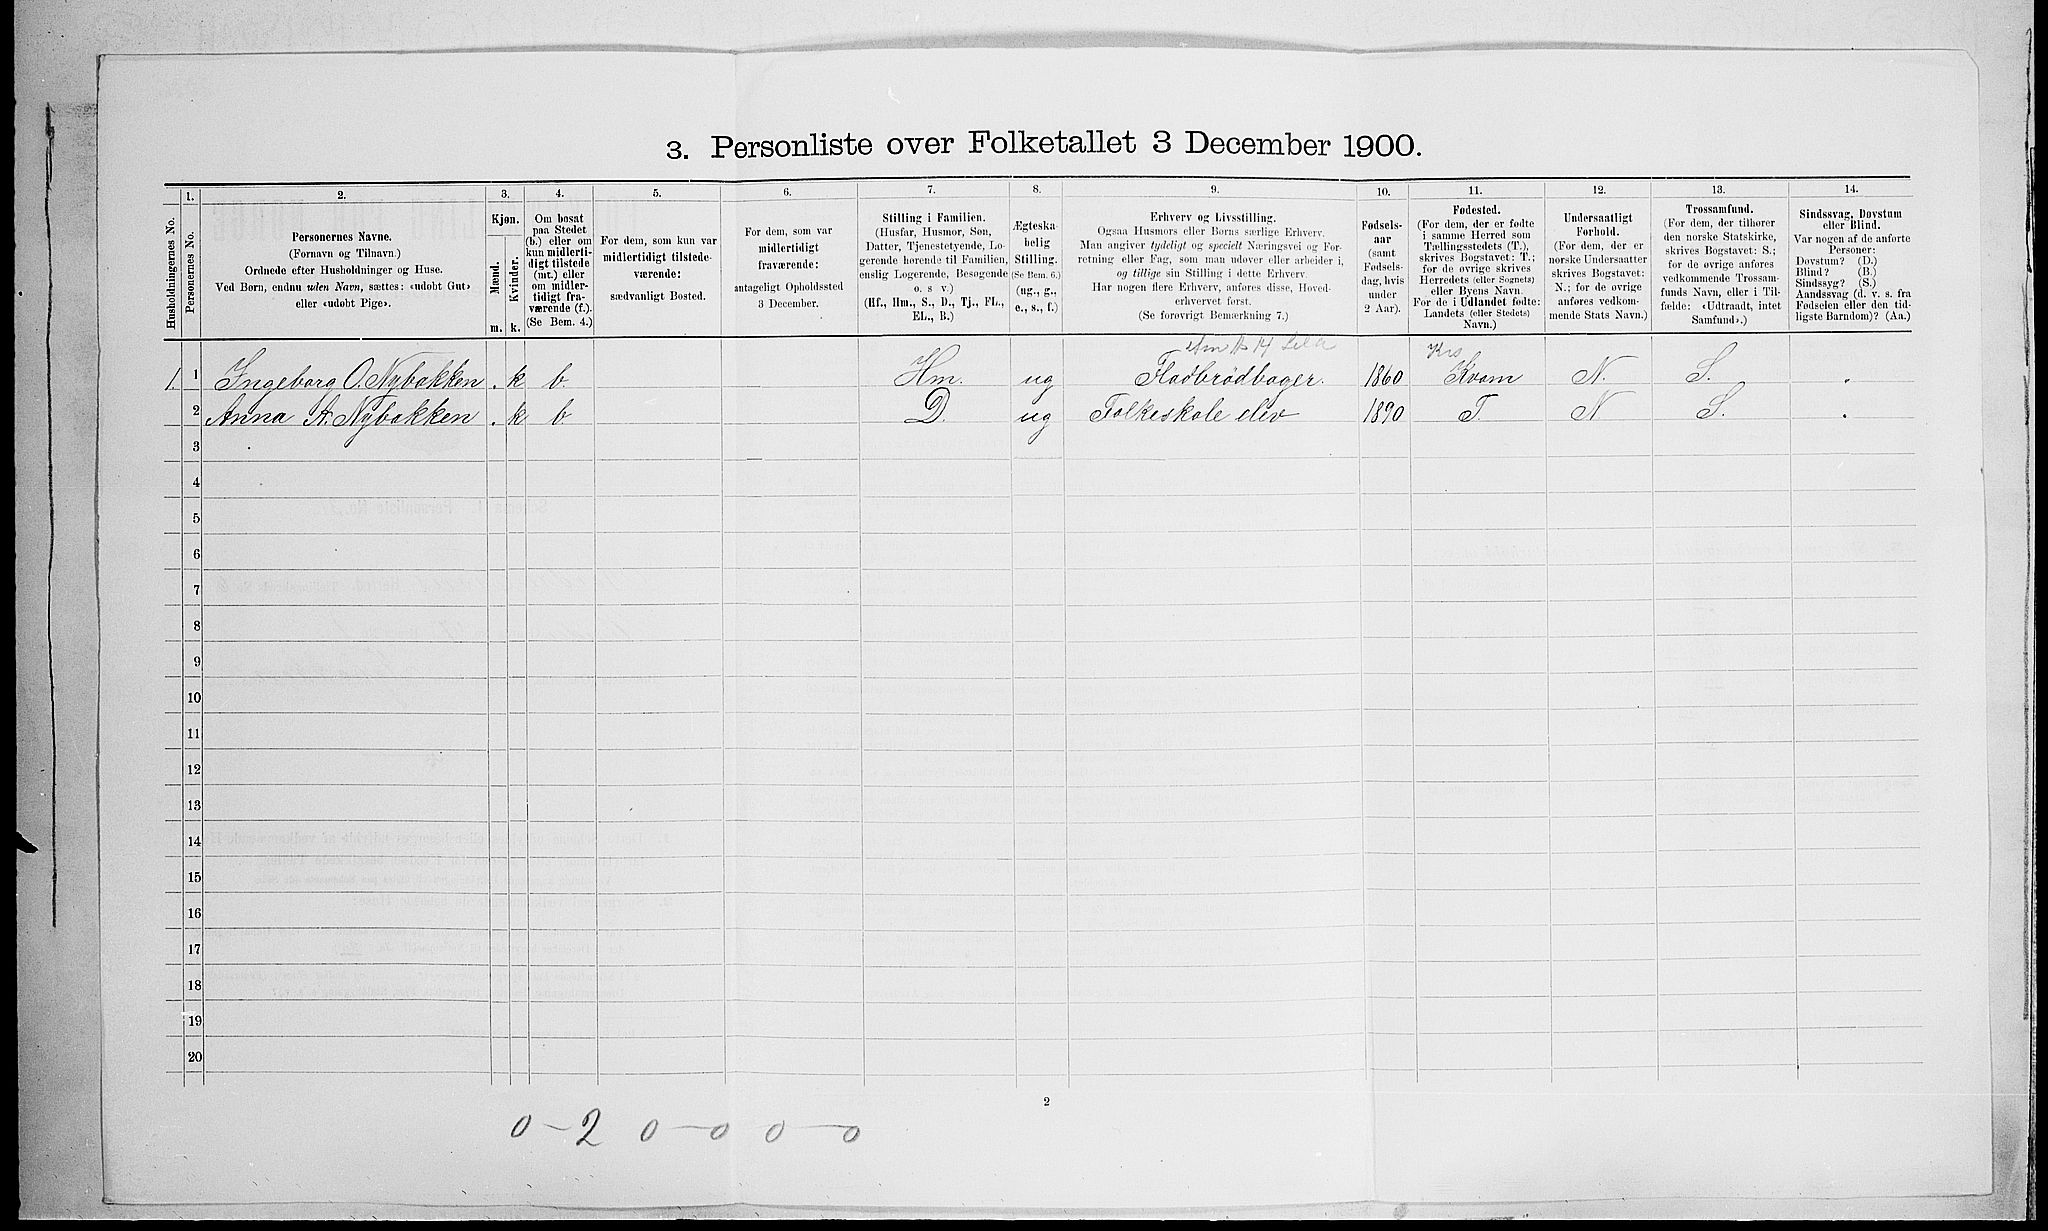 3. Personliste over Folketallet 3 December 1900.
1. 2. 3. 4. 5. 6. 7. 8. 9. 10. 11. 12. 13. 14.
Husholdningernes No.
Personernes No.
Personernes Navne.
(Fornavn og Tilnavn.)
Ordnede efter Husholdninger og Huse.
Ved Børn, endnu uden Navn, sættes: «udobt Gut»
eller «udobt Pige».
Kjøn.
Mænd.
Kvinder.
m. k.
Om bosat
paa Stedet
(b.) eller om
kun midler-
tidigt tilstede
(mt.) eller
om midler-
tidigt fra-
værende (f.).
(Se Bem. 4.)
For dem, som kun var
midlertidigt tilstede-
værende:
sædvanligt Bosted.
For dem, som var
midlertidigt
fraværende:
antageligt Opholdssted
3 December.
Stilling i Familien.
(Husfar, Husmor, Søn,
Datter, Tjenestetyende, Lo-
gerende hørende til Familien,
enslig Logerende, Besøgende
o. s. v.)
(Hf., Hm., S., D., Tj., FL.,
EL., B.)
Ægteska-
belig
Stilling.
(Se Bem. 6.)
(ug., g.,
e., s., f.)
Erhverv og Livsstilling.
Ogsaa Husmors eller Børns særlige Erhverv.
Man angiver tydeligt og specielt Næringsvei og For-
retning eller Fag, som man udøver eller arbeider i,
og tillige sin Stilling i dette Erhverv.
Har nogen flere Erhverv, anføres disse, Hoved-
erhvervet først.
(Se forøvrigt Bemærkning 7.)
Fødsels-
aar
(samt
Fødsels-
dag, hvis
under
2 Aar).
Fødested.
(For dem, der er fødte
i samme Herred som
Tællingsstedets (T.),
skrives Bogstavet: T.;
for de øvrige skrives
Herredets (eller Sognets)
eller Byens Navn.
For de i Udlandet fødte:
Landets (eller Stedets)
Navn.)
Undersaatligt
Forhold.
(For dem, der er
norske Undersaatter
skrives Bogstavet:
N.; for de øvrige
anføres vedkom-
mende Stats Navn.)
Trossamfund.
(For dem, der tilhører
den norske Statskirke,
skrives Bogstavet: S.;
for de øvrige anføres
vedkommende Trossam-
funds Navn, eller i Til-
fælde: «Udtraadt, intet
Samfund».)
Sindssvag, Døvstum
eller Blind.
Var nogen af de anførte
Personer:
Døvstum? (D.)
Blind? (B.)
Sindssyg? (S.)
Aandssvag (d. v. s. fra
Fødselen eller den tid-
ligste Barndom)? (Aa.)
1. 1 Ingeborg O. Nybakken . k b. Hm. ug Fladbrödbager. 1860 Kvam N. S. .
2 Anna A. Nybakken . k b D. ug Folkeskole elev 1890 T. N S. .
3
4
5
6
7
8
9
10
11
12
13
14
15
16
17
18
19
20
2
0 - 2 0 - 0 0 - 0